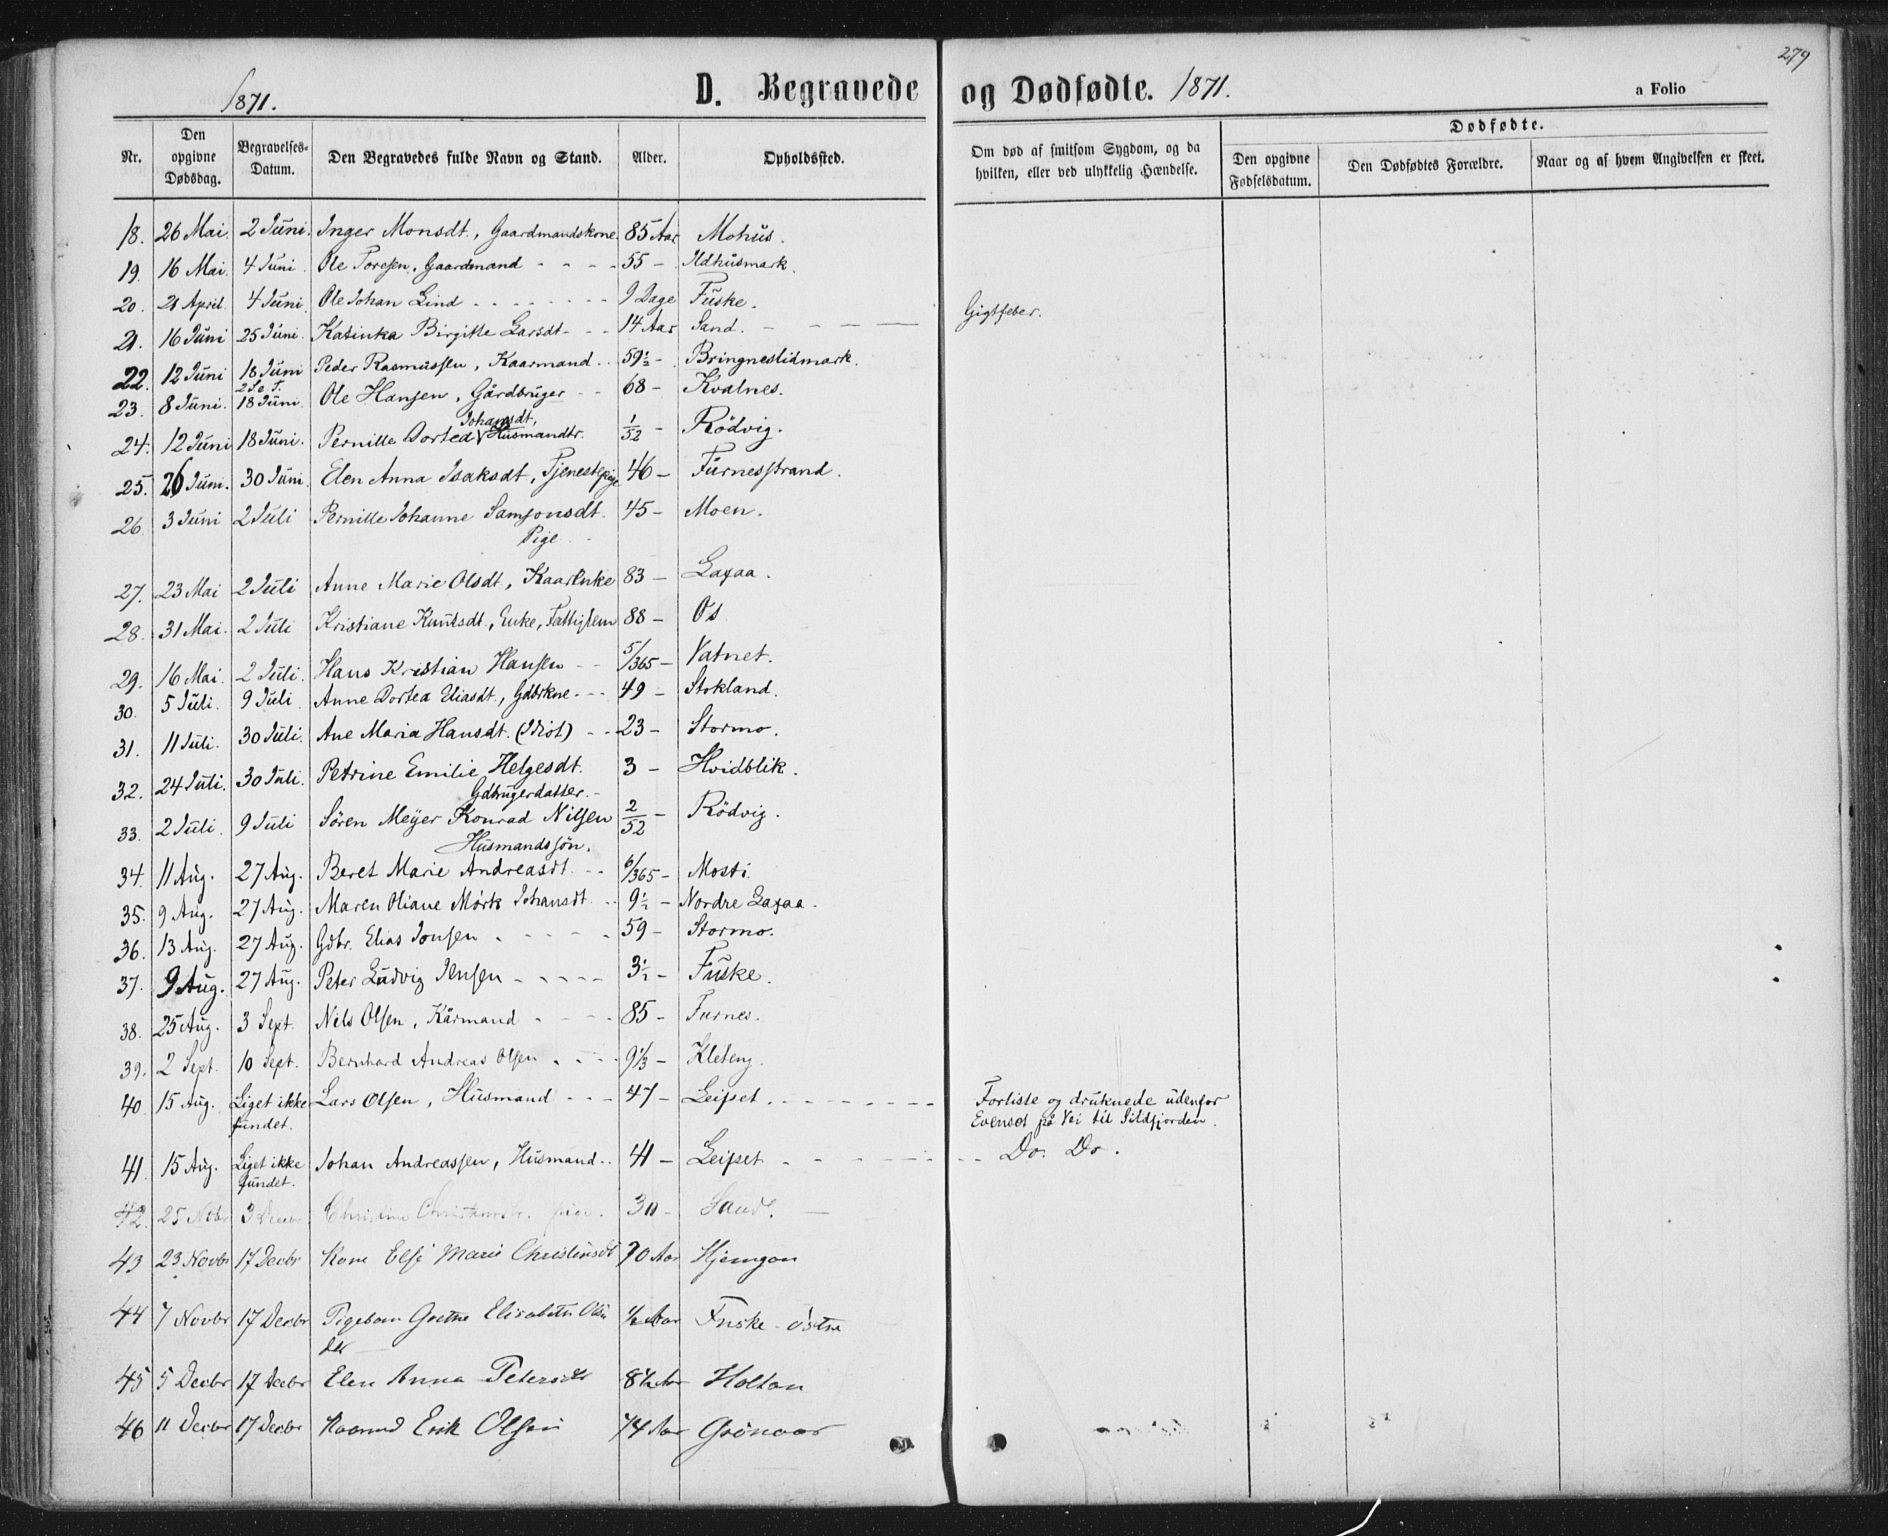 279
1871. D. Begravede og Dødfødte. 1871. a Folio
Nr. | Den opgivne Dødsdag. | Begravelses-Datum. | Den Begravedes fulde Navn og Stand. | Alder. | Opholdssted. | Om død af smitsom Sygdom, og da hvilken, eller ved ulykkelig Hændelse. | Dødfødte. | Den opgivne Fødselsdatum. | Den Dødfødtes Forældre. | Naar og af hvem Angivelsen er skeet.
18. 26 Mai. 2 Juni. Inger Monsdt, Gaardmandskone. 85 Aar Mohus.
19. 16 Mai. 4 Juni. Ole Toresen, Gaardmand - - - - 55 - Ildhusmark.
20. 21 April. 4 Juni. Ole Johan Lind - - - - - - - 9 Dage Fuske.
21. 16 Juni 25 Juni. Katinka Birgitte Larsdt - - - 14 Aar Sand. - - - - Gigtfeber.
22. 12 Juni 18 Juni Peder Rasmussen, Kaarmand. - 59½ - Bringneslidmark.
2 S. e. T.
23. 8 Juni. 18 Juni. Ole Hansen, Gårdbruger - - 68 - Kvalnes.
Johansdt,
24. 12 Juni 18 Juni. Pernille Dortea Husmandtr. 1/52 - Rödvig.
25. 26 Juni. 30 Juni. Elen Anna Isaksdt, Tjenestepige 46 - Furnesstrand.
26 3 Juni 2 Juli Pernille Johanne Samsonsdt. 45 - Moen.
Pige.
27. 23 Mai 2 Juli Anne Marie Olsdt, Kaarenke 83 - Laxaa.
28. 31 Mai. 2 Juli Kristiane Knutsdt., Enke, Fattiglem 88 - Os
29. 16 Mai. 2 Juli. Hans Kristian Hansen - - 5/365 - Vatnet.
30. 5 Juli. 9 Juli. Anne Dortea Eliasdt., Gdbrkne. - - 49 - Stokland.
31. 11 Juli. 30 Juli. Ane Maria Hansdt. (Idiot) - - 23 - Stormo.
32. 24 Juli. 30 Juli. Petrine Emilie Helgesdt. 3 - Hvidblik.
Gdbrugerdatter. -
33. 2 Juli. 9 Juli Sören Meyer Konrad Nilsen 2/52 - Rödvig.
Husmandssön.
34. 11 Aug. 27 Aug. Beret Marie Andreasdt. - - 6/365 - Mosti.
35. 9 Aug. 27 Aug. Maren Oliane Mørk Johansdt - - 9½ - Nordre Laxaa.
36. 13 Aug. 27 Aug. Gdbr. Elias Jonsen - - - - 59 - Stormo.
37. 9 Aug. 27 Aug. Peter Ludvig Jensen - - - - - 3½ - Fuske.
38. 25 Aug. 3 Sept. Nils Olsen, Kårmand - - - - 85 - Furnes.
39. 2 Sept. 10 Sept. Bernhard Andreas Olsen - - - - 9⅓ - Kleteng.
40 15 Aug. Liget ikke fundet. Lars Olsen, Husmand - - - 47 - Leifset. - - - - - - - Forliste og druknede udenfor
Evenset på Vei til Sildfjorden.
41. 15 Aug. Liget ikke fundet. Johan Andreassen, Husmand - - 41 - Leifset - - - - - - - Do. Do.
42. 25 Nobr 3 Decbr Christine 30 - Sand. -
43 23 Novbr 17 Decbr Kone Else Marie Christensdt 70 Aar Hjemgan
44 7 Novbr 17 Decbr Pigebarn Grethe Elisabeth Ols
dtr ½ Aar Fuske - östre
45 5 Decbr 17 Decbr Elen Anna Petersdtr 8½ Aar Holtan
46 11 Decbr 17 Decbr Kaarmd Erik Olsen 74 Aar Grönaas